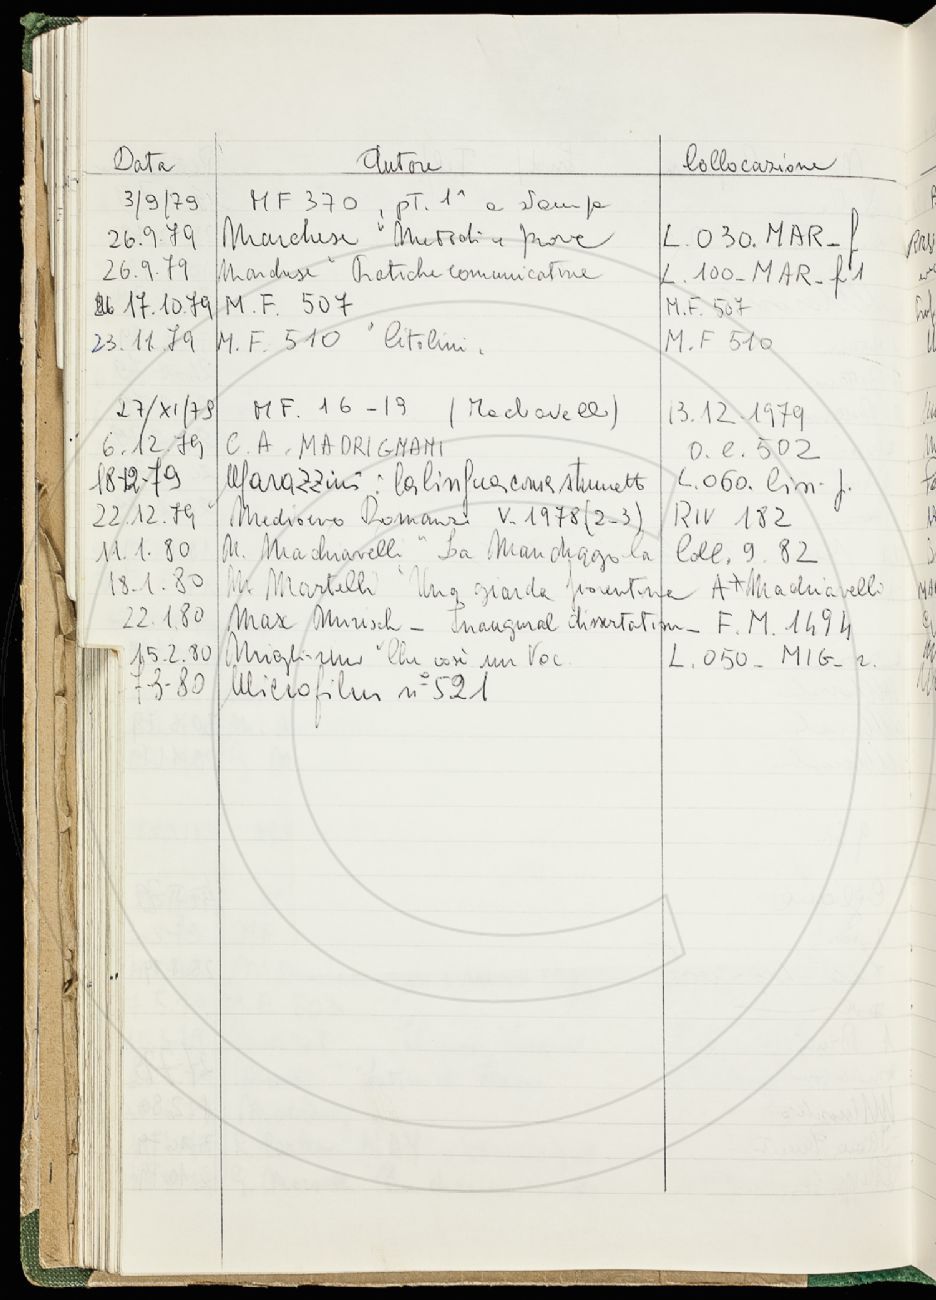 Data Autore Collocazione
3/9/79 MF 370, pt. 1ª a stampa
26.9.79 Marchese "Metodi e prove L. 030. MAR_f
26.9.79 Marchese "Pratiche comunicative L. 100_ MAR_f1
17.10.79 M.F. 507 M.F. 507
23.11.79 M.F. 510 "Citolini. M.F 510
27/XI/79 MF. 16-19 (Machiavelli) 13.12.1979
6.12.79 C.A. MADRIGNANI O.C. 502
18-12-79 Marazzini: La lingua come strumento L.060. Lin. f.
22.12.79 Medioevo Romanzo V. 1978(2-3) RIV 182
11.1.80 N. Machiavelli "La Mandragola Coll. 9. 82
18.1.80 M. Martelli "Una giarda fiorentina A* Machiavelli
22.1.80 Max _ Inaugural dissertation_ F.M. 1494
15.2.80 Migliorini "Che cos'è un Voc. L. 050_ MIG_ 2.
7-3-80 Microfilm nº 521